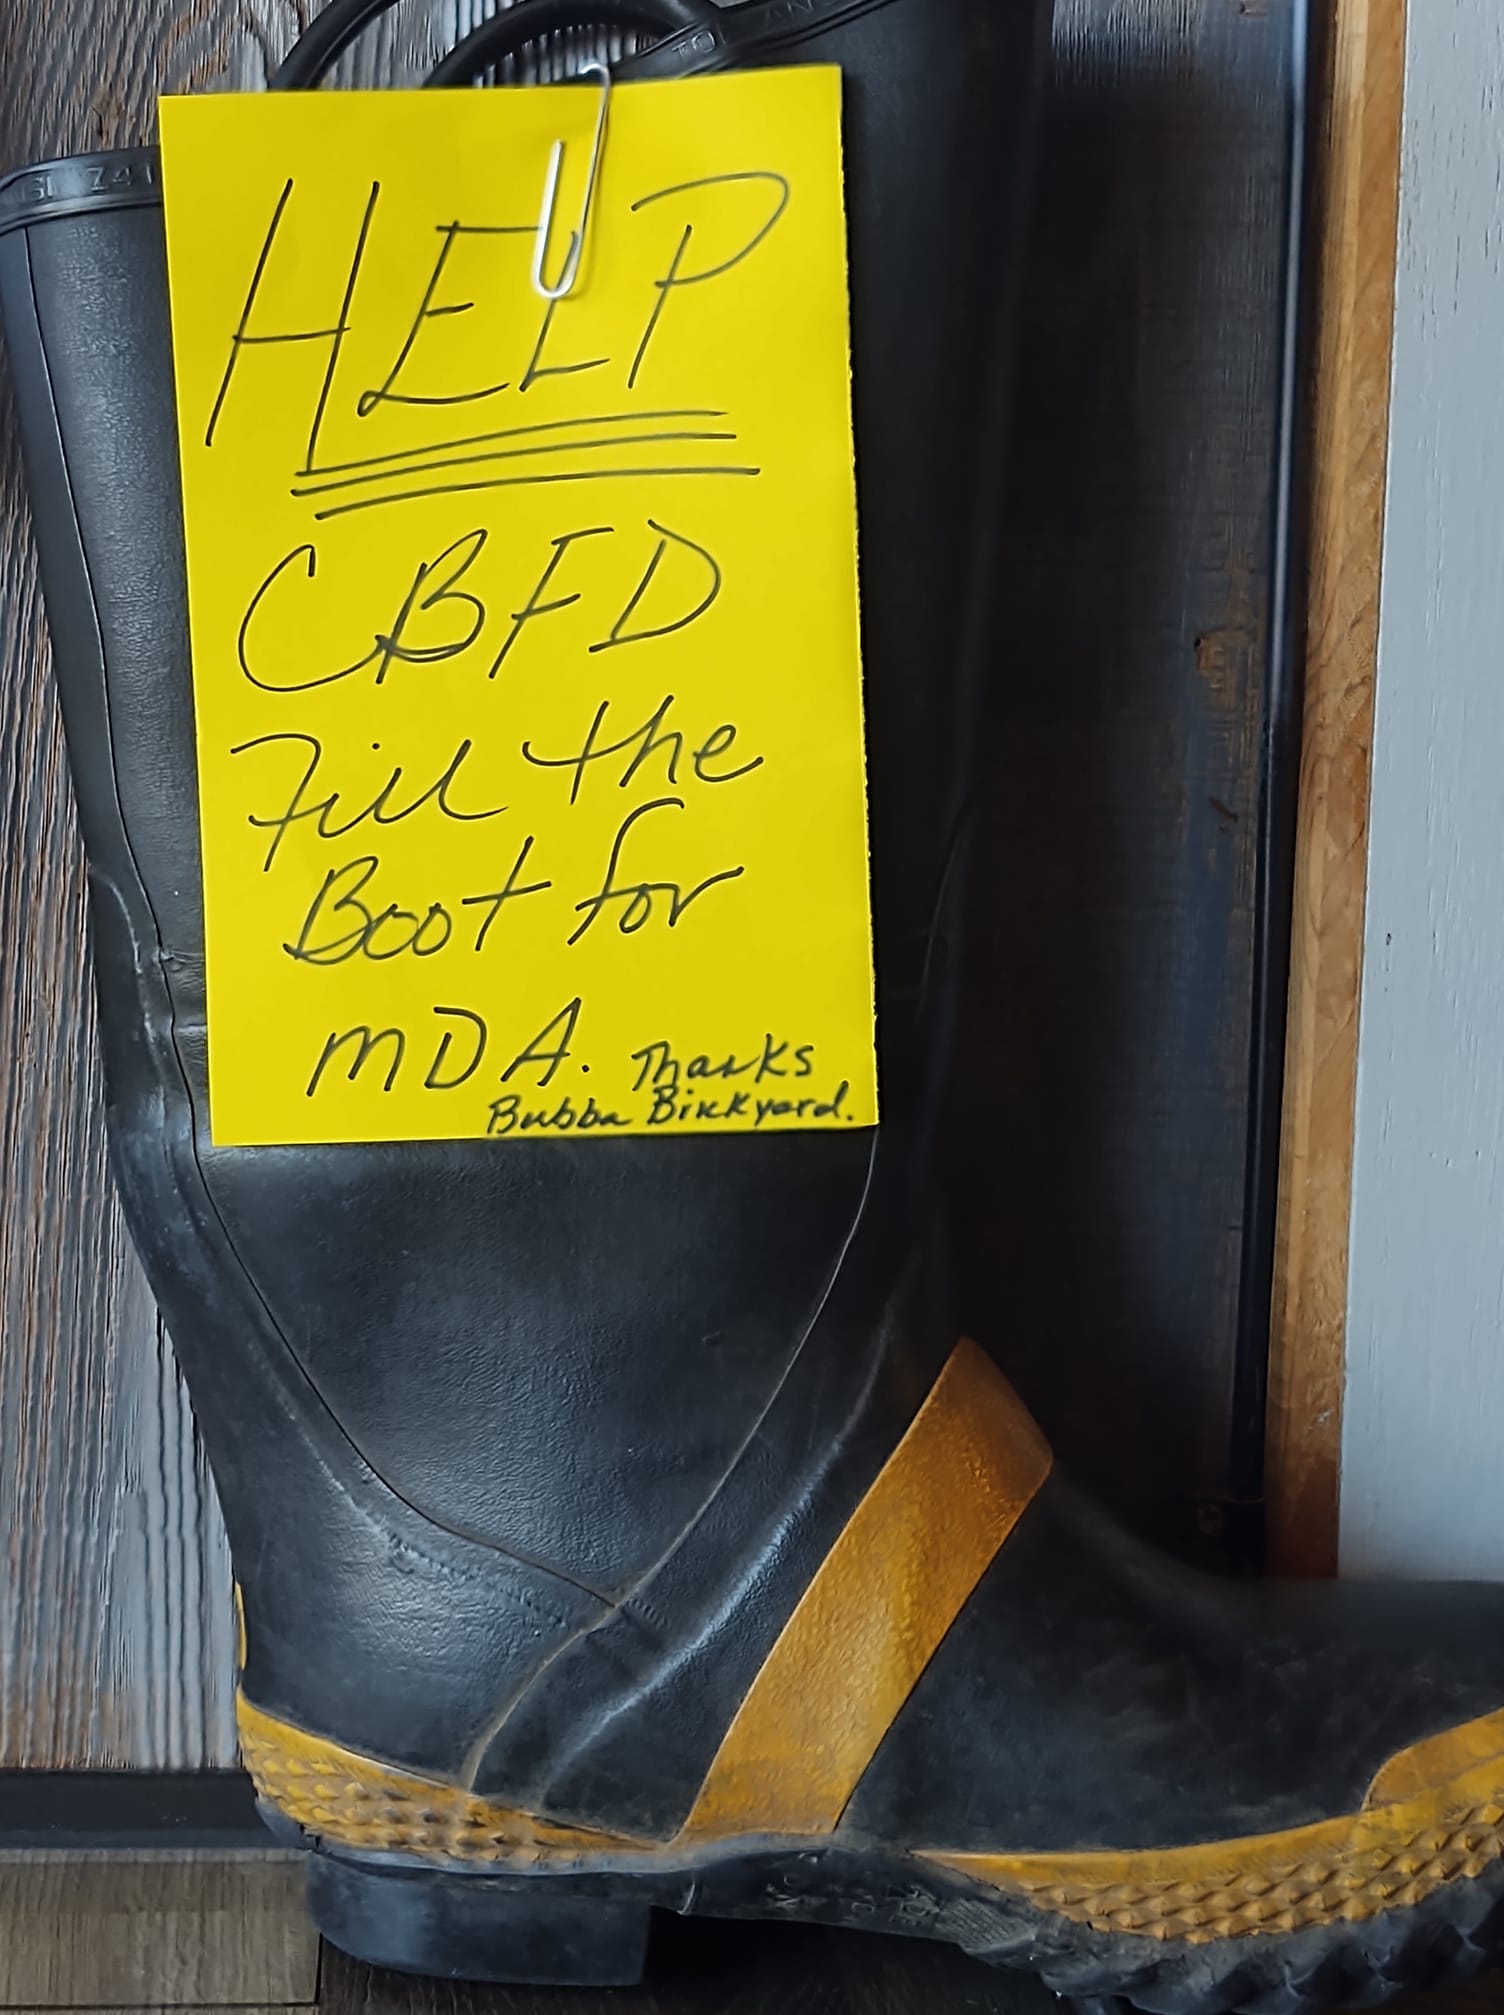 HELP
CBFD
Fill the
Boot for
MDA. Thanks
Bubba Brickyard.